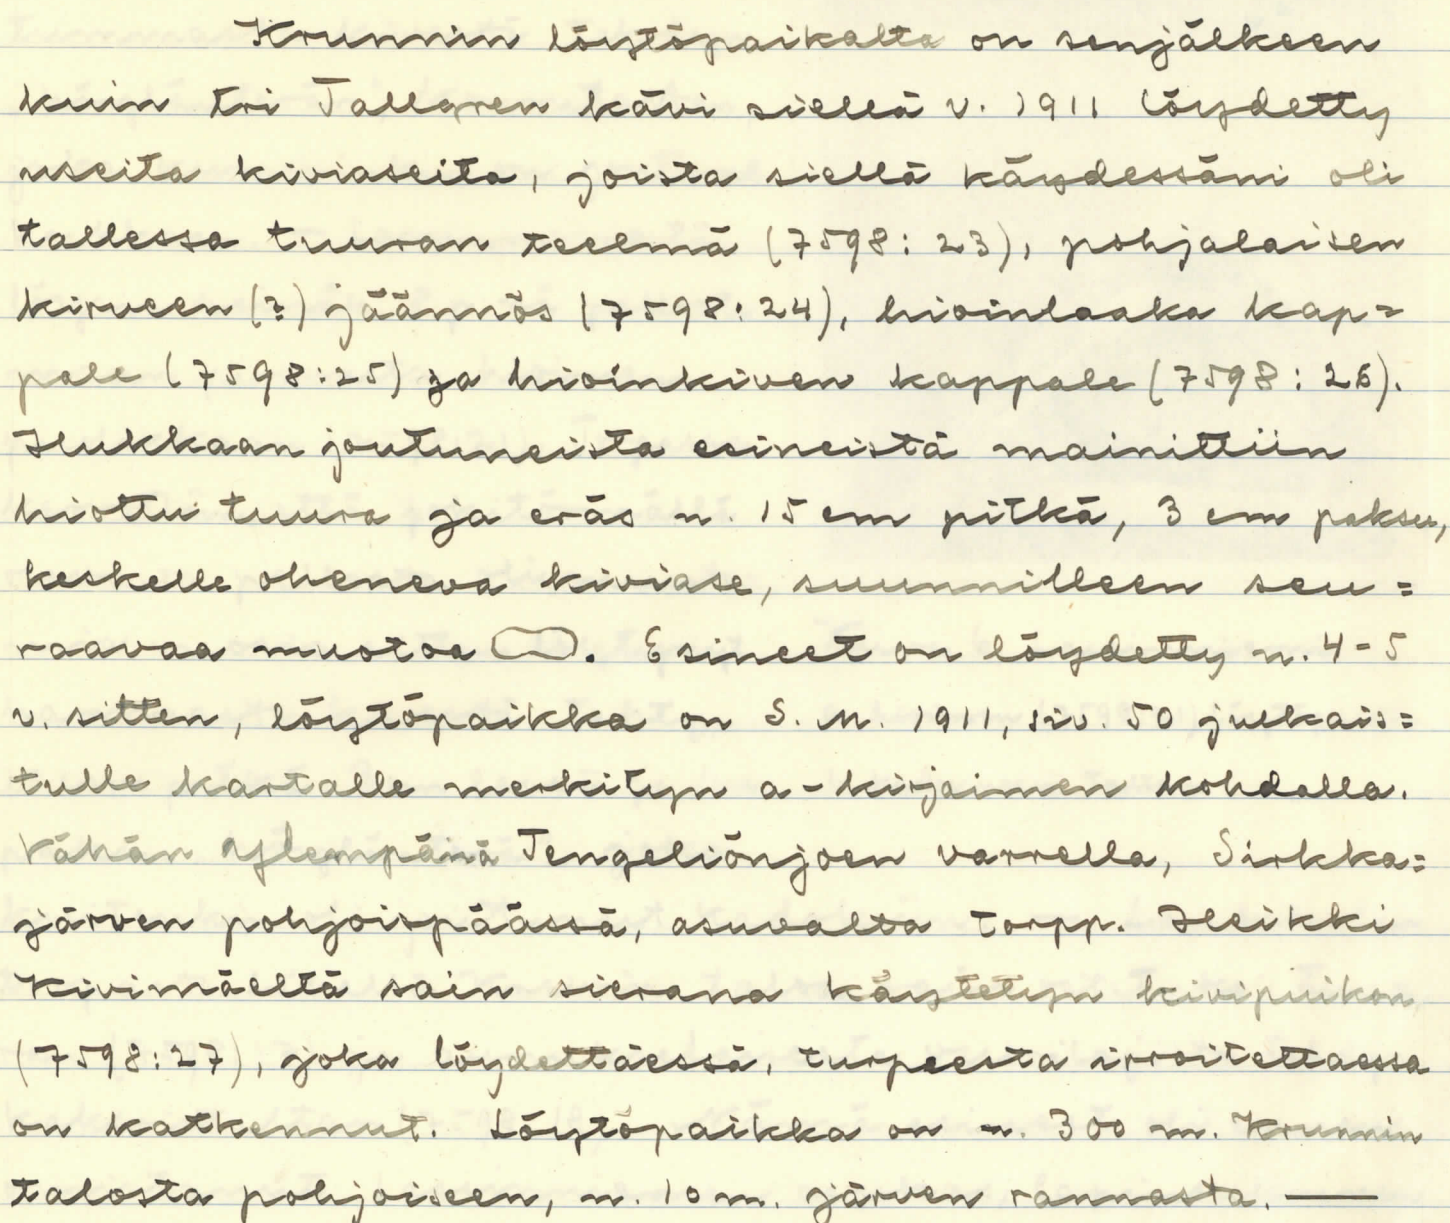 Krunnin löytöpaikalta on senjälkeen
kuin tri Tallgren kävi siellä v. 1911 löydetty
useita kiviaseita, joista siellä käydessäni oli
tallessa tuuran teelmä (7598:23), pohjalaisen
kirveen (?) jäännös (7598:24), hioinlaaka kap=
pale (7598:25) ja hioinkiven kappale (7598:26).
Hukkaan joutuneista esineistä mainittiin
hiottu tuura ja eräs n. 15 cm pitkä, 3 cm paksu,
keskelle oheneva kiviase, suunnilleen seu=
raavaa muotoa. Esineet on löydetty n. 4-5
v. sitten, löytöpaikka on S. M. 1911, siv. 50 julkais=
tulle kartalle merkityn a-kirjaimen kohdalla.
Vähän ylempänä Tengeliönjoen varrella, Sirkka=
järven pohjoispäässä, asuvalta torpp. Heikki
Kivimäeltä sain sierana käytetyn kivipuikon
(7598:27), joka löydettäessä, turpeesta irroitettaessa
on katkennut. Löytöpaikka on n. 300 m. Krunnin
talosta pohjoiseen, n. 10 m. järven rannasta. —